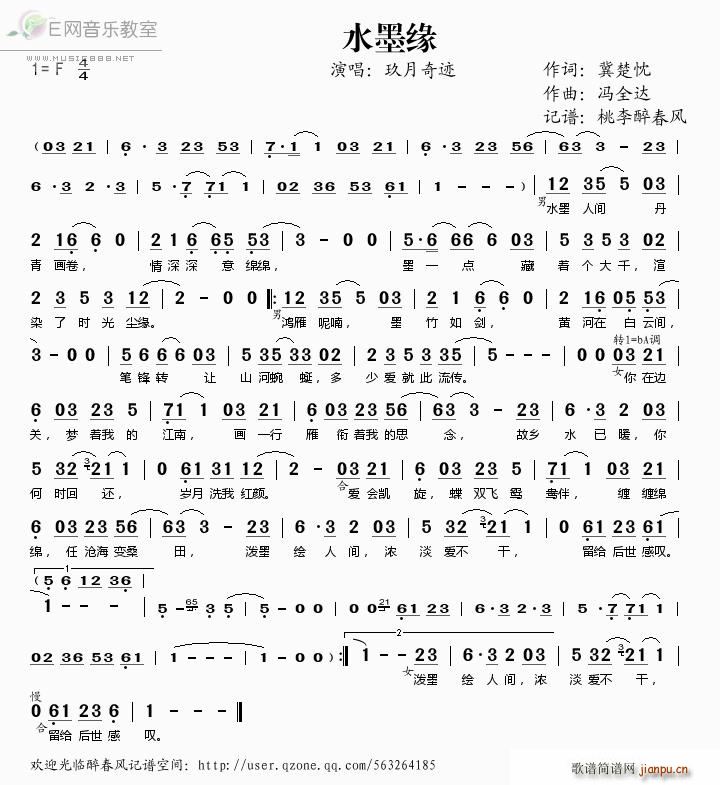 E网音乐教室
WWW.MUSIC888.NET
水墨缘
1=F 4/4
演唱：玖月奇迹
作词：冀楚忱
作曲：冯全达
记谱：桃李醉春风
（03 21 | 6·3 23 53 | 7·1 1 03 21 | 6·3 23 53 56 | 63 3 - 23 |
6·3 2 03 | 5·7 71 1 | 02 36 53 61 | 1 - - - ）| 12 35 5 03 |
男 水墨 人间 丹
2 16 6 0 | 2 1 6 65 53 | 3 - 0 0 | 5·6 66 6 03 | 5 35 3 02 |
青 画卷， 情深深 意绵绵， 墨一点 藏 着个大千，渲
2 3 5 3 12 | 2 - 0 0 |: 12 35 5 03 | 2 1 6 6 0 | 2 16 05 53 |
染了时光尘缘。 男 鸿雁呢喃， 墨 竹如剑， 黄河在白云间，
转1=bA调
3 - 0 0 | 5 6 6 6 03 | 5 35 33 02 | 2 35 33 35 | 5 - - - | 0 0 03 21 |
笔锋转 让 山河蜿蜒，多 少爱就此流传。 女 你在边
6 03 23 5 | 71 1 03 21 | 6 03 23 56 | 63 3 - 23 | 6·3 2 03 |
关，梦着我的 江南， 画一行 雁衔着我的思 念， 故乡 水已暖，你
5 32 3 21 1 | 0 61 31 12 | 2 - 03 21 | 6 03 23 5 | 71 1 03 21 |
何时回 还， 岁月洗我红颜。 合 爱会凯 旋，蝶双飞鸳 鸯伴， 缠缠绵
6 03 23 56 | 63 3 - 23 | 6·3 2 03 | 5 32 3 21 1 | 0 61 23 61 |
绵，任沧海变桑 田， 泼墨 绘人间，浓 淡爱不 干， 留给后世感叹。
1
（5 6 12 36）
1 - - - | 5·65 3 5 | 5 - 0 0 | 0 0 21 61 23 | 6·3 23 03 | 5·7 71 1 |
2
02 36 53 61 | 1 - - - | 1 - 0 0 ）:| 1 - - 23 | 6·3 2 03 | 5 32 3 21 1 |
女 泼墨 绘人间，浓 淡爱不 干，
慢
0 61 23 6 | 1 - - - ‖
合 留给后世感 叹。
欢迎光临醉春风记谱空间：http://user.qzone.qq.com/563264185
歌谱简谱网
jianpu.cn